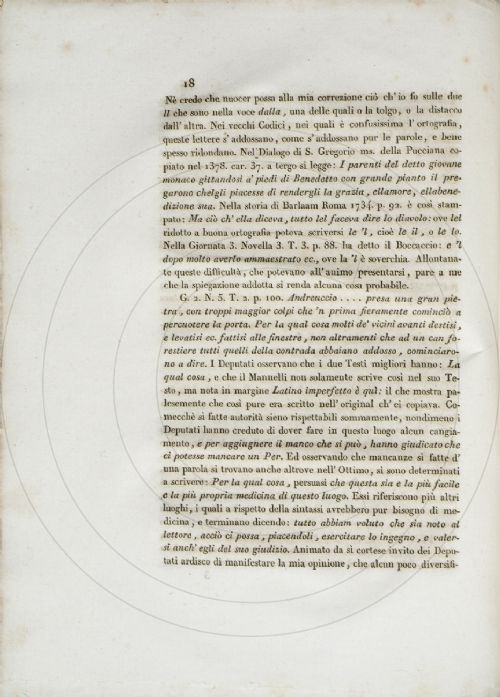 18
Nè credo che nuocer possa alla mia correzione ciò ch'io fo sulle due
ll che sono nella voce dalla, una delle quali o la tolgo, o la distacco
dall'altra. Nei vecchi Codici, nei quali è confusissima l'ortografia,
queste lettere s'addossano, come s'addossano pur le parole, e bene
spesso ridondano. Nel Dialogo di S. Gregorio ms. della Pucciana co-
piato nel 1378. car. 37. a tergo si legge: I parenti del detto giovane
monaco gittandosi a' piedi di Benedetto con grande pianto il pre-
garono chelgli piacesse di rendergli la grazia, ellamore, ellabene-
dizione sua. Nella storia di Barlaam Roma 1734. p. 92. è così stam-
pato: Ma ciò ch'ella diceva, tutto lel faceva dire lo diavolo: ove lel
ridotto a buona ortografia potova scriversi le 'l, cioè le il, o le lo.
Nella Giornata 3. Novella 3. T. 3. p. 88. ha detto il Boccaccio: e 'l
dopo molto averlo ammaestrato ec., ove la 'l è soverchia. Allontana-
te queste difficultà, che potevano all'animo presentarsi, pare a me
che la spiegazione addotta si renda alcuna cosa probabile.
G. 2. N. 5. T. 2. p. 100. Andreuccio .... presa una gran pie-
tra, con troppi maggior colpi che 'n prima fieramente cominciò a
percuotere la porta. Per la qual cosa molti de' vicini avanti destisi,
e levatisi ec. fattisi alle finestre, non altramenti che ad un can fo-
restiere tutti quelli della contrada abbaiano addosso, cominciaro-
no a dire. I Deputati osservano che i due Testi migliori hanno: La
qual cosa, e che il Manuelli non solamente scrive così nel suo Te-
sto, ma nota in margine Latino imperfetto è quì: il che mostra pa-
lesemente che così pure era scritto nell'original ch'ei copiava. Co-
mecchè sì fatte autorità sieno rispettabili sommamente, nondimeno i
Deputati hanno creduto di dover fare in questo luogo alcun cangia-
mento, e per aggiugnere il manco che si può, hanno giudicato che
ci potesse mancare un Per. Ed osservando che mancanze sì fatte d'
una parola si trovano anche altrove nell'Ottimo, si sono determinati
a scrivere: Per la qual cosa, persuasi che questa sia e la più facile
e la più propria medicina di questo luogo. Essi riferiscono più altri
luoghi, i quali a rispetto della sintassi avrebbero pur bisogno di me-
dicina, e terminano dicendo: tutto abbiam voluto che sia noto al
lettore, acciò ci possa, piacendoli, esercitare lo ingegno, e valer-
si anch'egli del suo giudizio. Animato da sì cortese invito dei Depu-
tati ardisco di manifestare la mia opinione, che alcun poco diversifi-